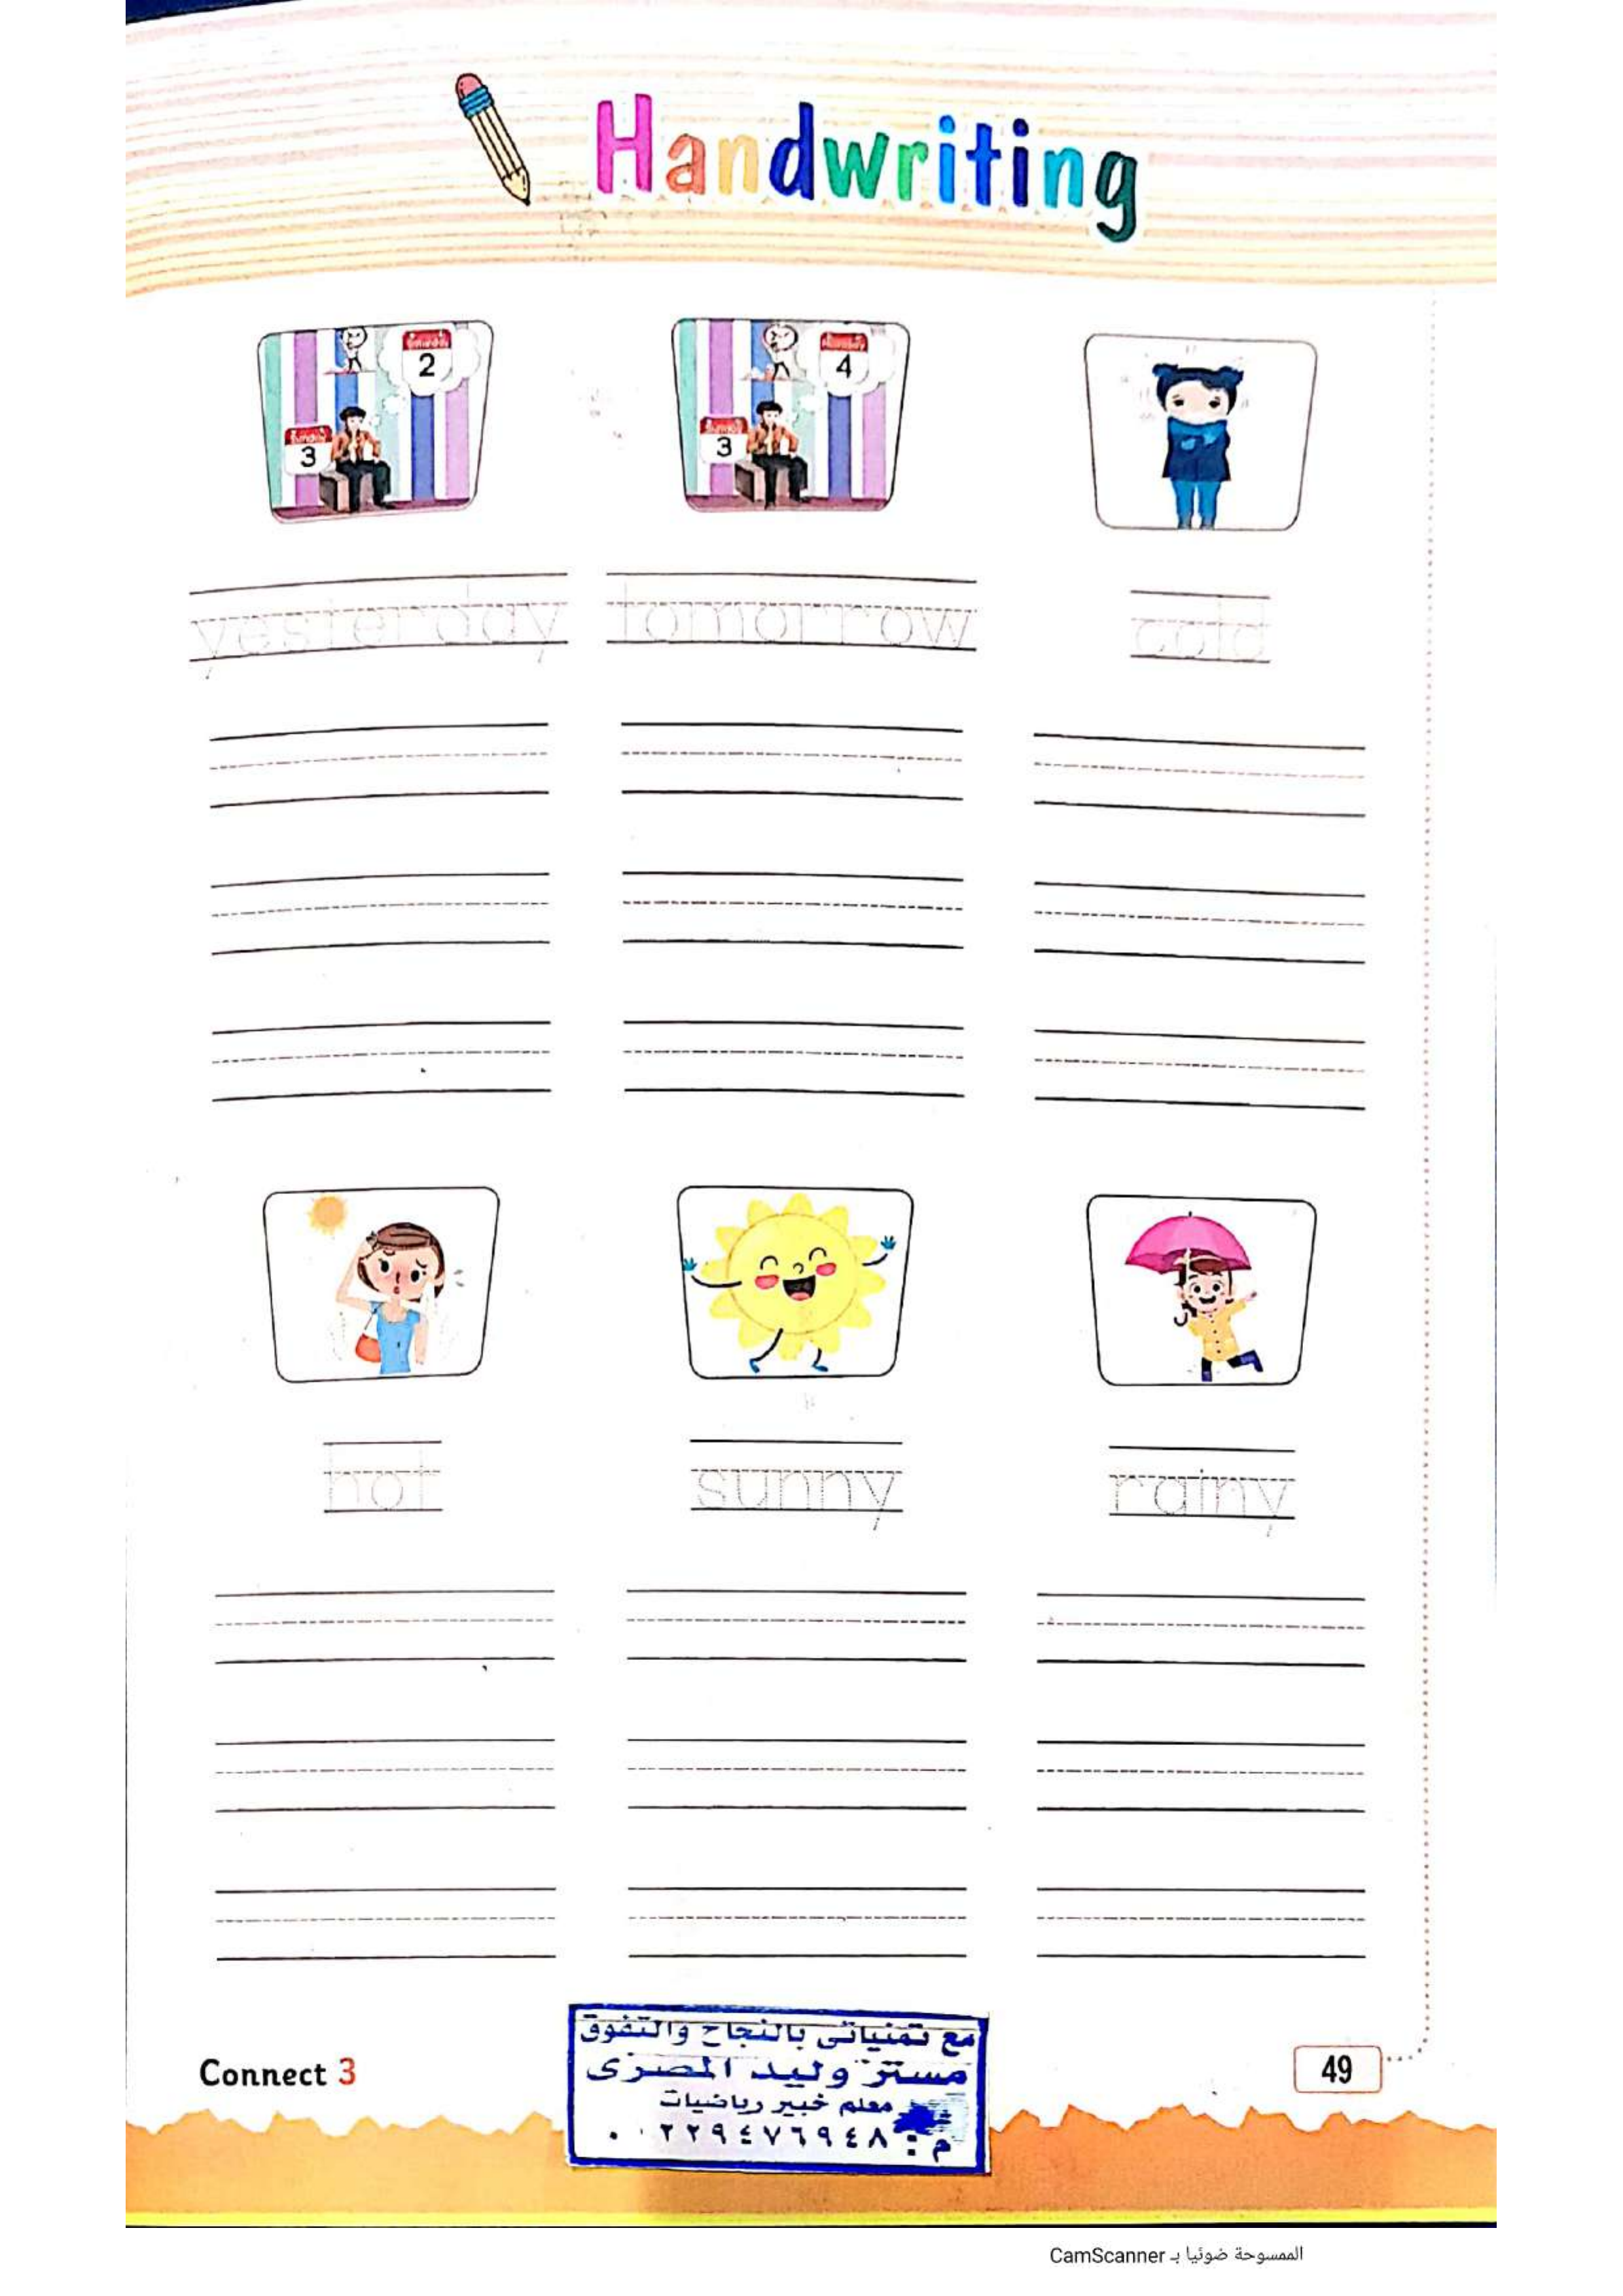 Handwriting
2
4
3
3
yesterday tomorrow cold
hot sunny rainy
مع تمنياتى بالنجاح والتفوق
مستر وليد المصرى
معلم خبير رياضيات
Connect 3
49
الممسوحة ضوئيا بـ CamScanner